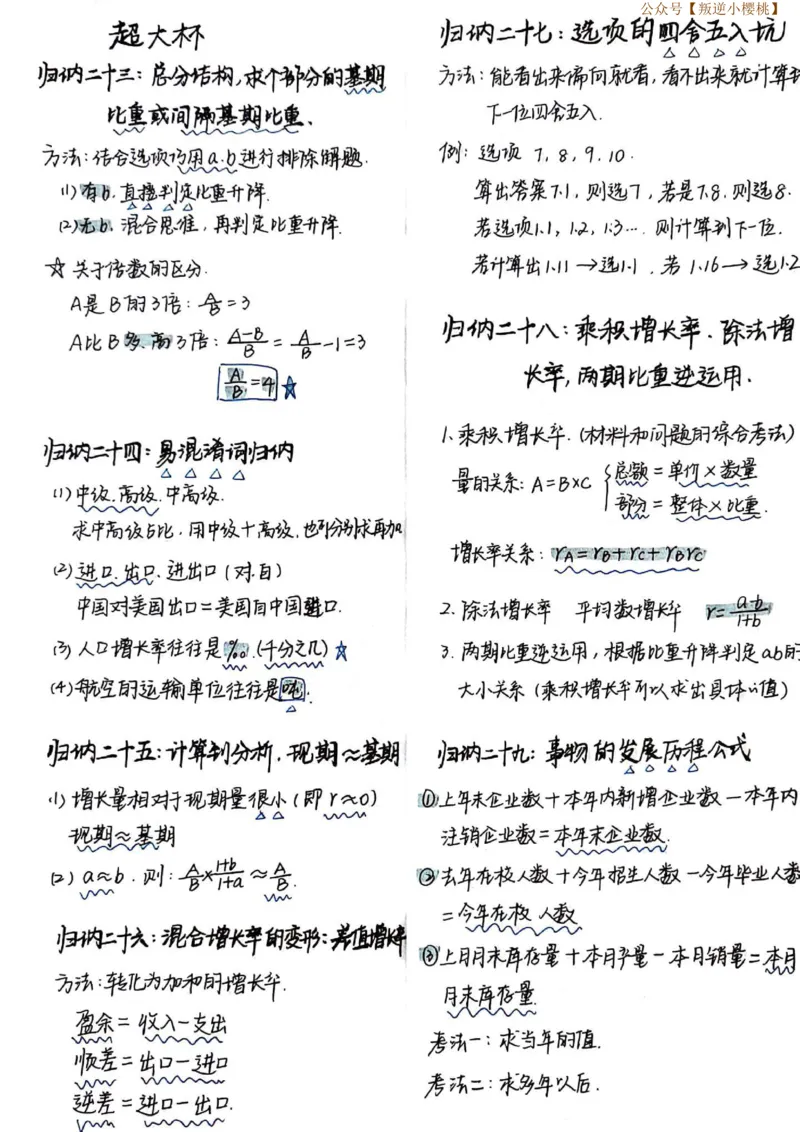 公众号【叛逆小樱桃】
超大杯
归纳二十三：总分结构，求个部分的基期
比重或间隔基期比重、
方法：结合选项巧用a.b进行排除解题.
(1)有b.直接判定比重升降.
(2)无b.混合思维，再判定比重升降.
☆关于倍数的区分.
A是B的3倍：A/B=3
A比B多、高3倍：(A-B)/B = A/B -1=3
A/B=4 ☆
归纳二十四：易混淆词归纳
(1)中级.高级.中高级.
求中高级占比，用中级+高级，也可分别求再加
(2)进口.出口.进出口(对.自)
中国对美国出口=美国自中国进口.
(3)人口增长率往往是‰.(千分之几)☆
(4)航空的运输单位往往是吨.
归纳二十五：计算到分析.现期≈基期
(1)增长量相对于现期量很小(即r≈0)
现期≈基期
(2) a≈b.则：A/B×(1+b)/(1+a)≈A/B.
归纳二十六：混合增长率的变形：差值增长率
方法：转化为加和的增长率.
盈余=收入-支出
顺差=出口-进口
逆差=进口-出口.
归纳二十七：选项的四舍五入坑
方法：能看出来偏向就看，看不出来就计算到
下一位四舍五入.
例：选项 7，8，9，10.
算出答案7.1，则选7，若是7.8.则选8.
若选项1.1，1.2，1.3…则计算到下一位.
若计算出1.11→选1.1.若1.16→选1.2
归纳二十八：乘积增长率.除法增
长率，两期比重逆运用.
1.乘积增长率.(材料和问题的综合考法)
量的关系：A=B×C {总额=单价×数量
部分=整体×比重.
增长率关系：rA=rB+rC+rBrC
2.除法增长率 平均数增长率 r=(a-b)/(1+b)
3.两期比重逆运用，根据比重升降判定ab的
大小关系(乘积增长率可以求出具体的值)
归纳二十九：事物的发展历程公式
①上年末企业数+本年内新增企业数-本年内
注销企业数=本年末企业数.
②去年在校人数+今年招生人数-今年毕业人数
=今年在校人数
③上月月末库存量+本月产量-本月销量=本月
月末库存量.
考法一：求当年的值.
考法二：求多年以后.